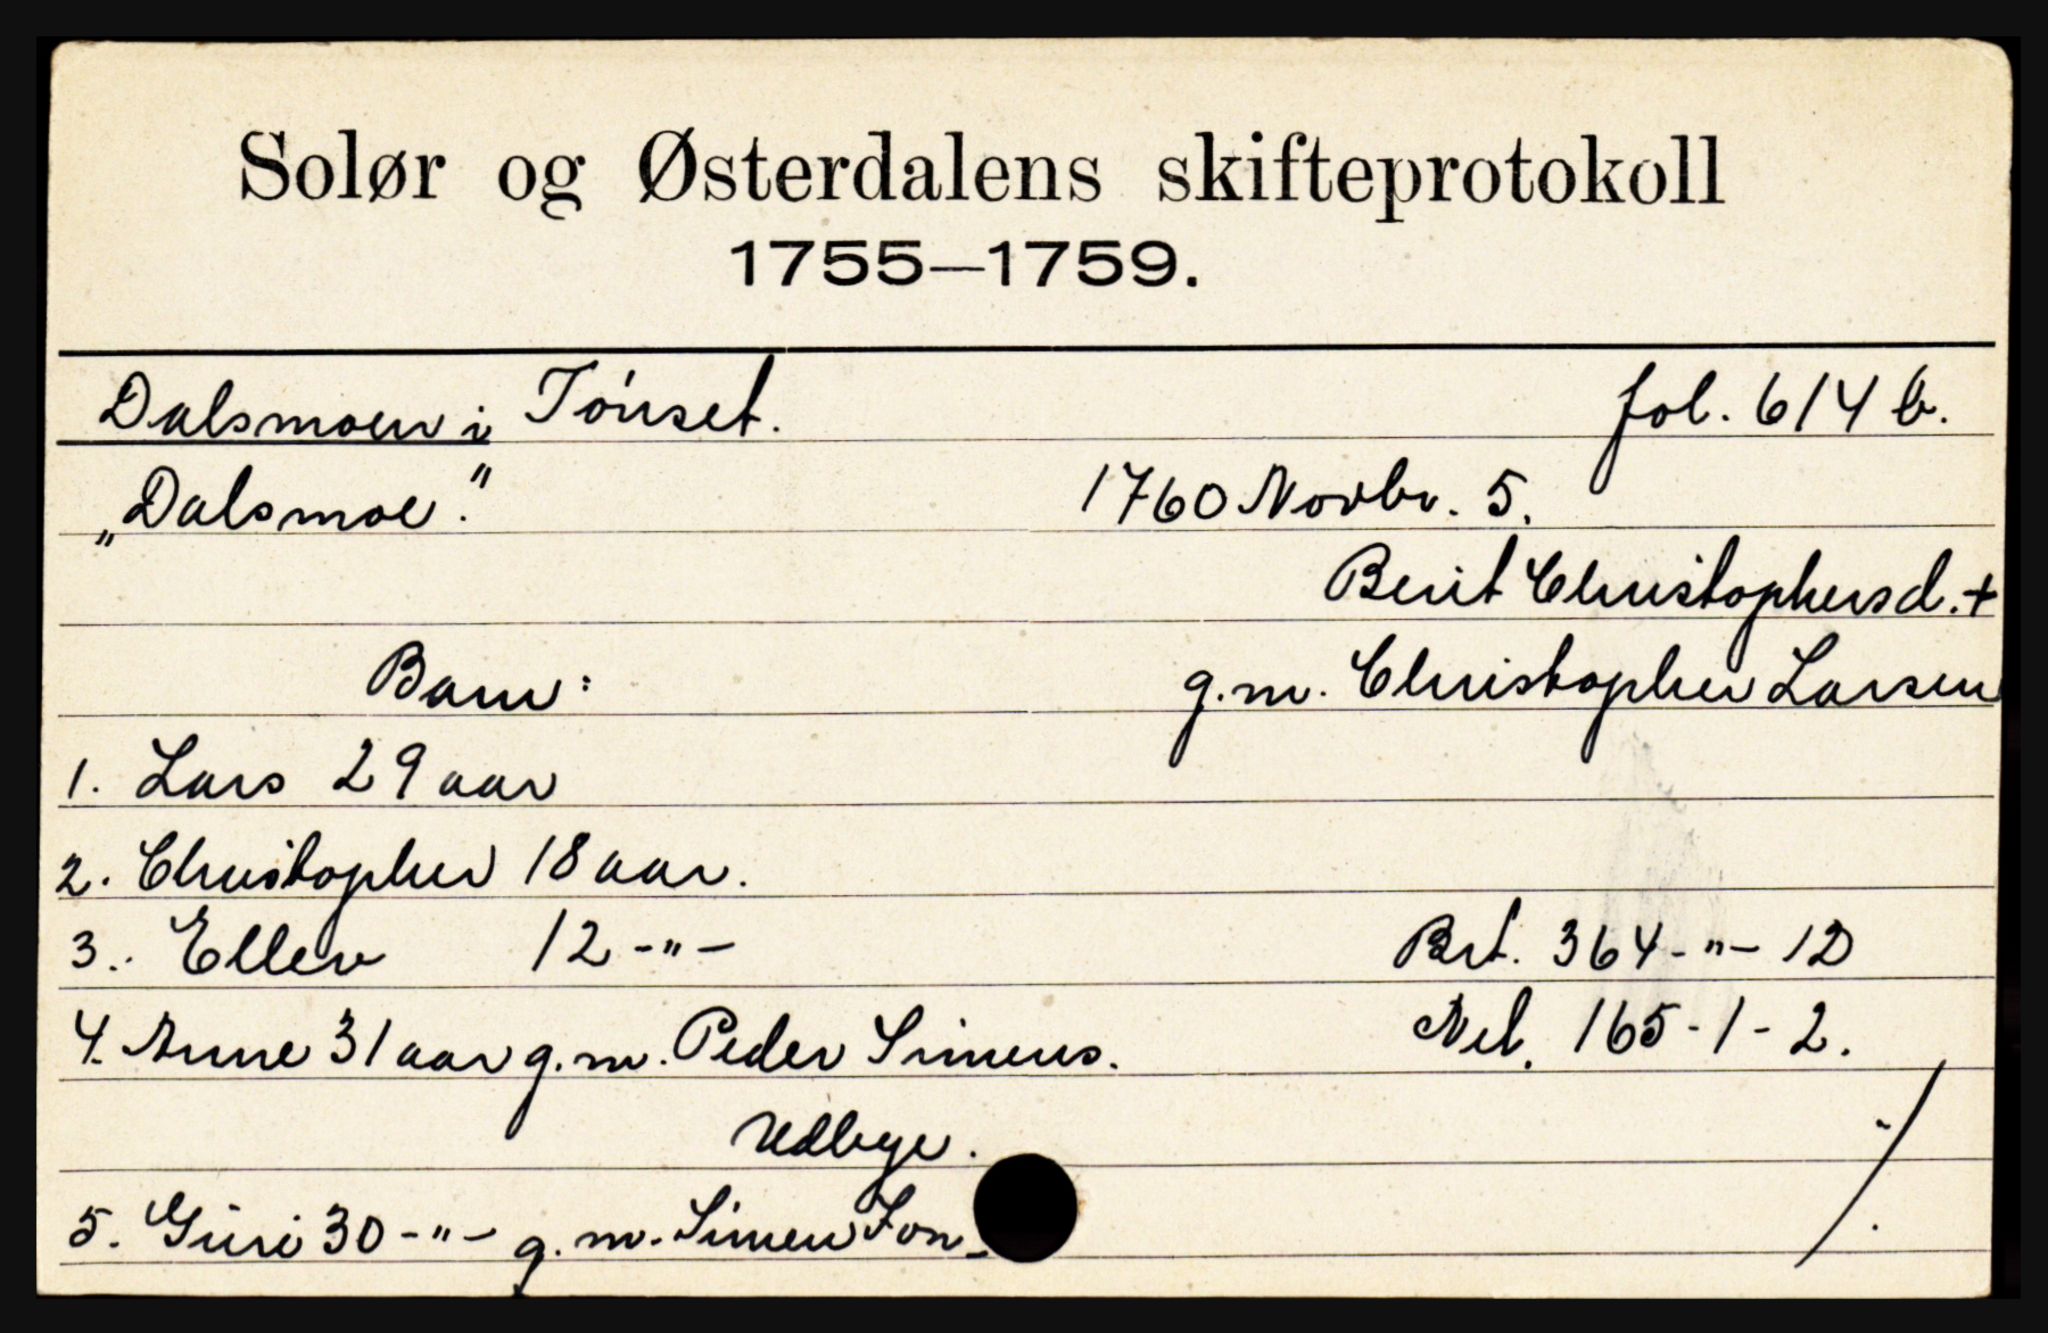 Solør og Østerdalens skifteprotokoll
1755—1759.
Dalsmoen i Tónset. fol. 614 b.
„Dalsmoe." 1760 Novbr. 5.
Berit Christophersd. +
Barn: g.m. Christopher Larsen
1. Lars 29 aar
2. Christopher 18 aar.
3. Ellen 12 -"- Brt. 364-"- 12
4. Anne 31 aar g.m. Peder Simens. Net. 165-1-2.
Udbye. ./.
5. Guri 30 -"- g.m. Simen Jon-